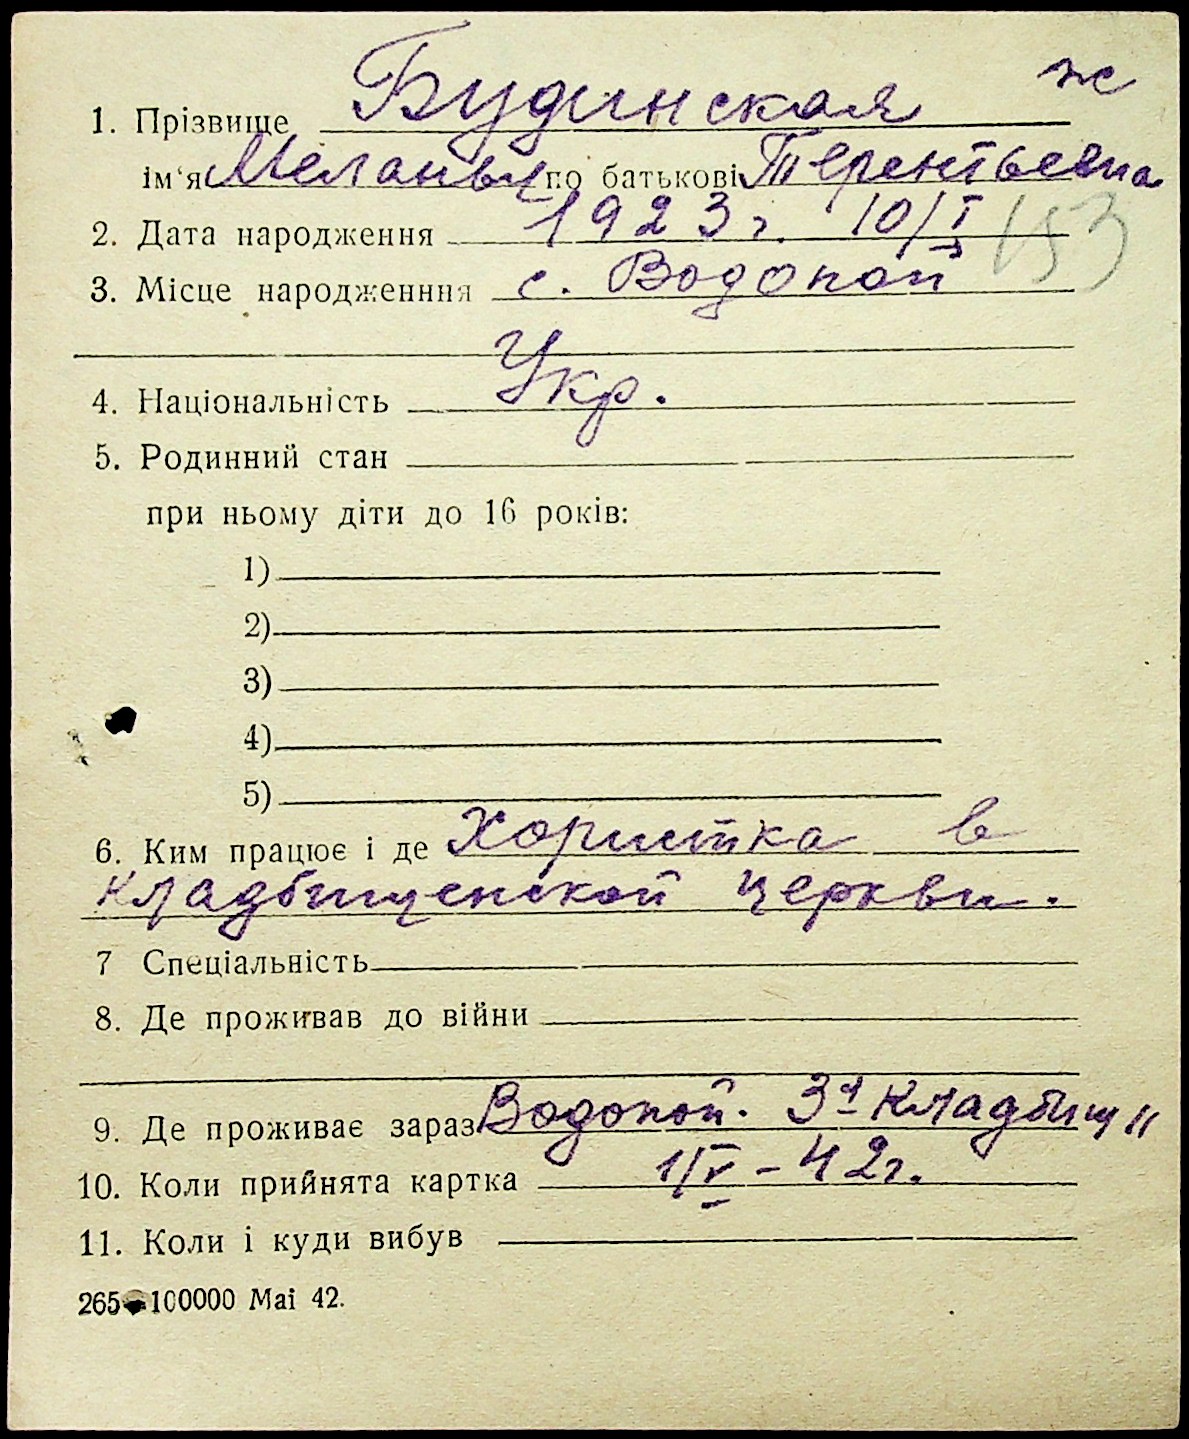 ж
1. Прізвище Будинская
ім‘я Меланья по батькові Терентьевна
2. Дата народження 1923 г. 10/I
153
3. Місце народженння с. Водопой
4. Національність Укр.
5. Родинний стан
при ньому діти до 16 років:
1)
2)
3)
4)
5)
6. Ким працює і де Хористка в
кладбищенской церкви.
7 Спеціальність
8. Де проживав до війни
9. Де проживає зараз Водопой. 3я Кладбищ"
10. Коли прийнята картка 1/V - 42 г.
11. Коли і куди вибув
265 100000 Маі 42.